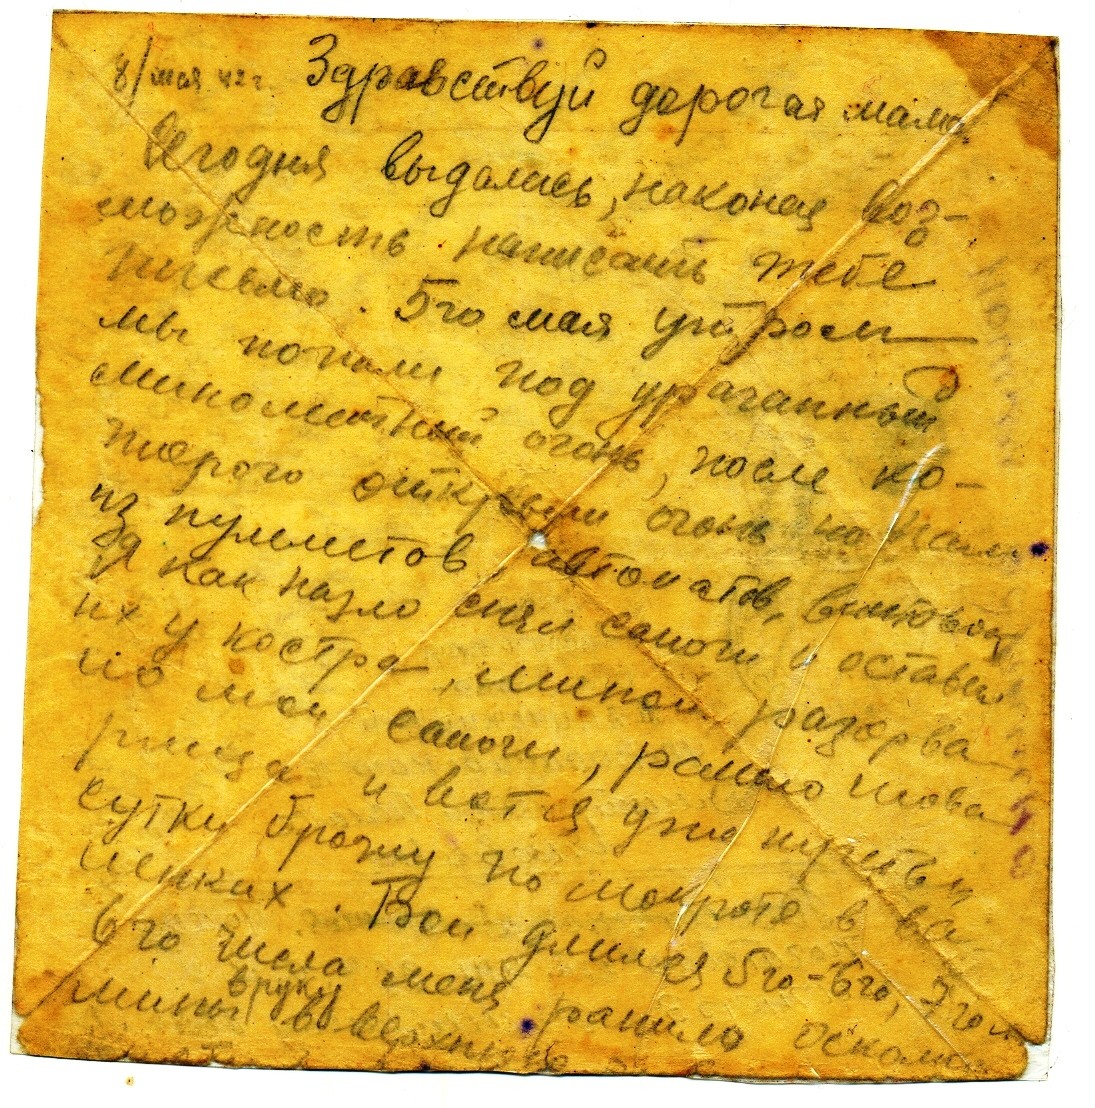 8/мая 42 г. Здравствуй дорогая мама
Сегодня выдалась, наконец воз-
можность написать тебе
письмо. 5го мая утром
мы попали под ураганный
минометный огонь, после ко-
торого открыли огонь по нам
из пулеметов автоматов, винтовок
Я как назло снял сапоги и оставил
их у костра, миной разорва-
ло мои сапоги, ранило товарища
и вот я уже
сутки брожу по мокроте в ва-
ленках. Бой длился 5го-6го, 7го и
6го числа меня ранило осколком
мины в руку в верхнюю